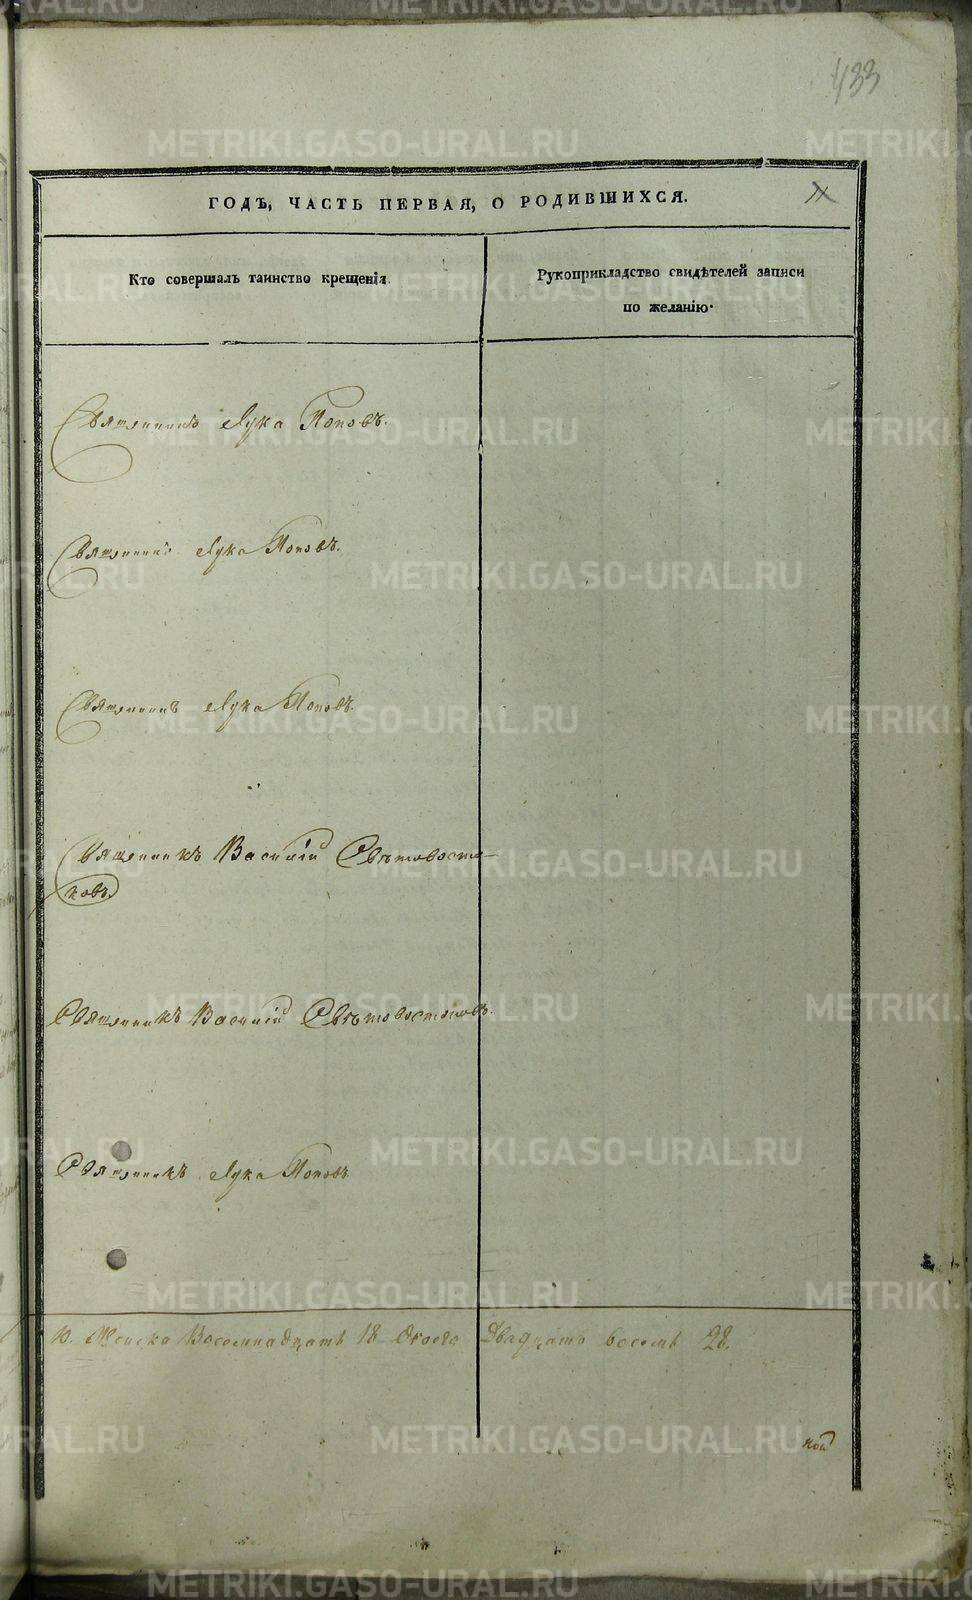 433
ГОДЪ, ЧАСТЬ ПЕРВАЯ, О РОДИВШИХСЯ.
Кто совершалъ таинство крещенія.
Рукоприкладство свидѣтелей записи
по желанію.
Священникъ Лука Поповъ.
Священникъ Лука Поповъ.
Священникъ Лука Поповъ.
Священникъ Василій Свѣтовосто-
ковъ.
Священникъ Василій Свѣтовостоковъ.
Священникъ Лука Поповъ
10. Женска Восемнадцать 18 Обоего Двадцать восемь 28.
METRIKI.GASO-URAL.RU